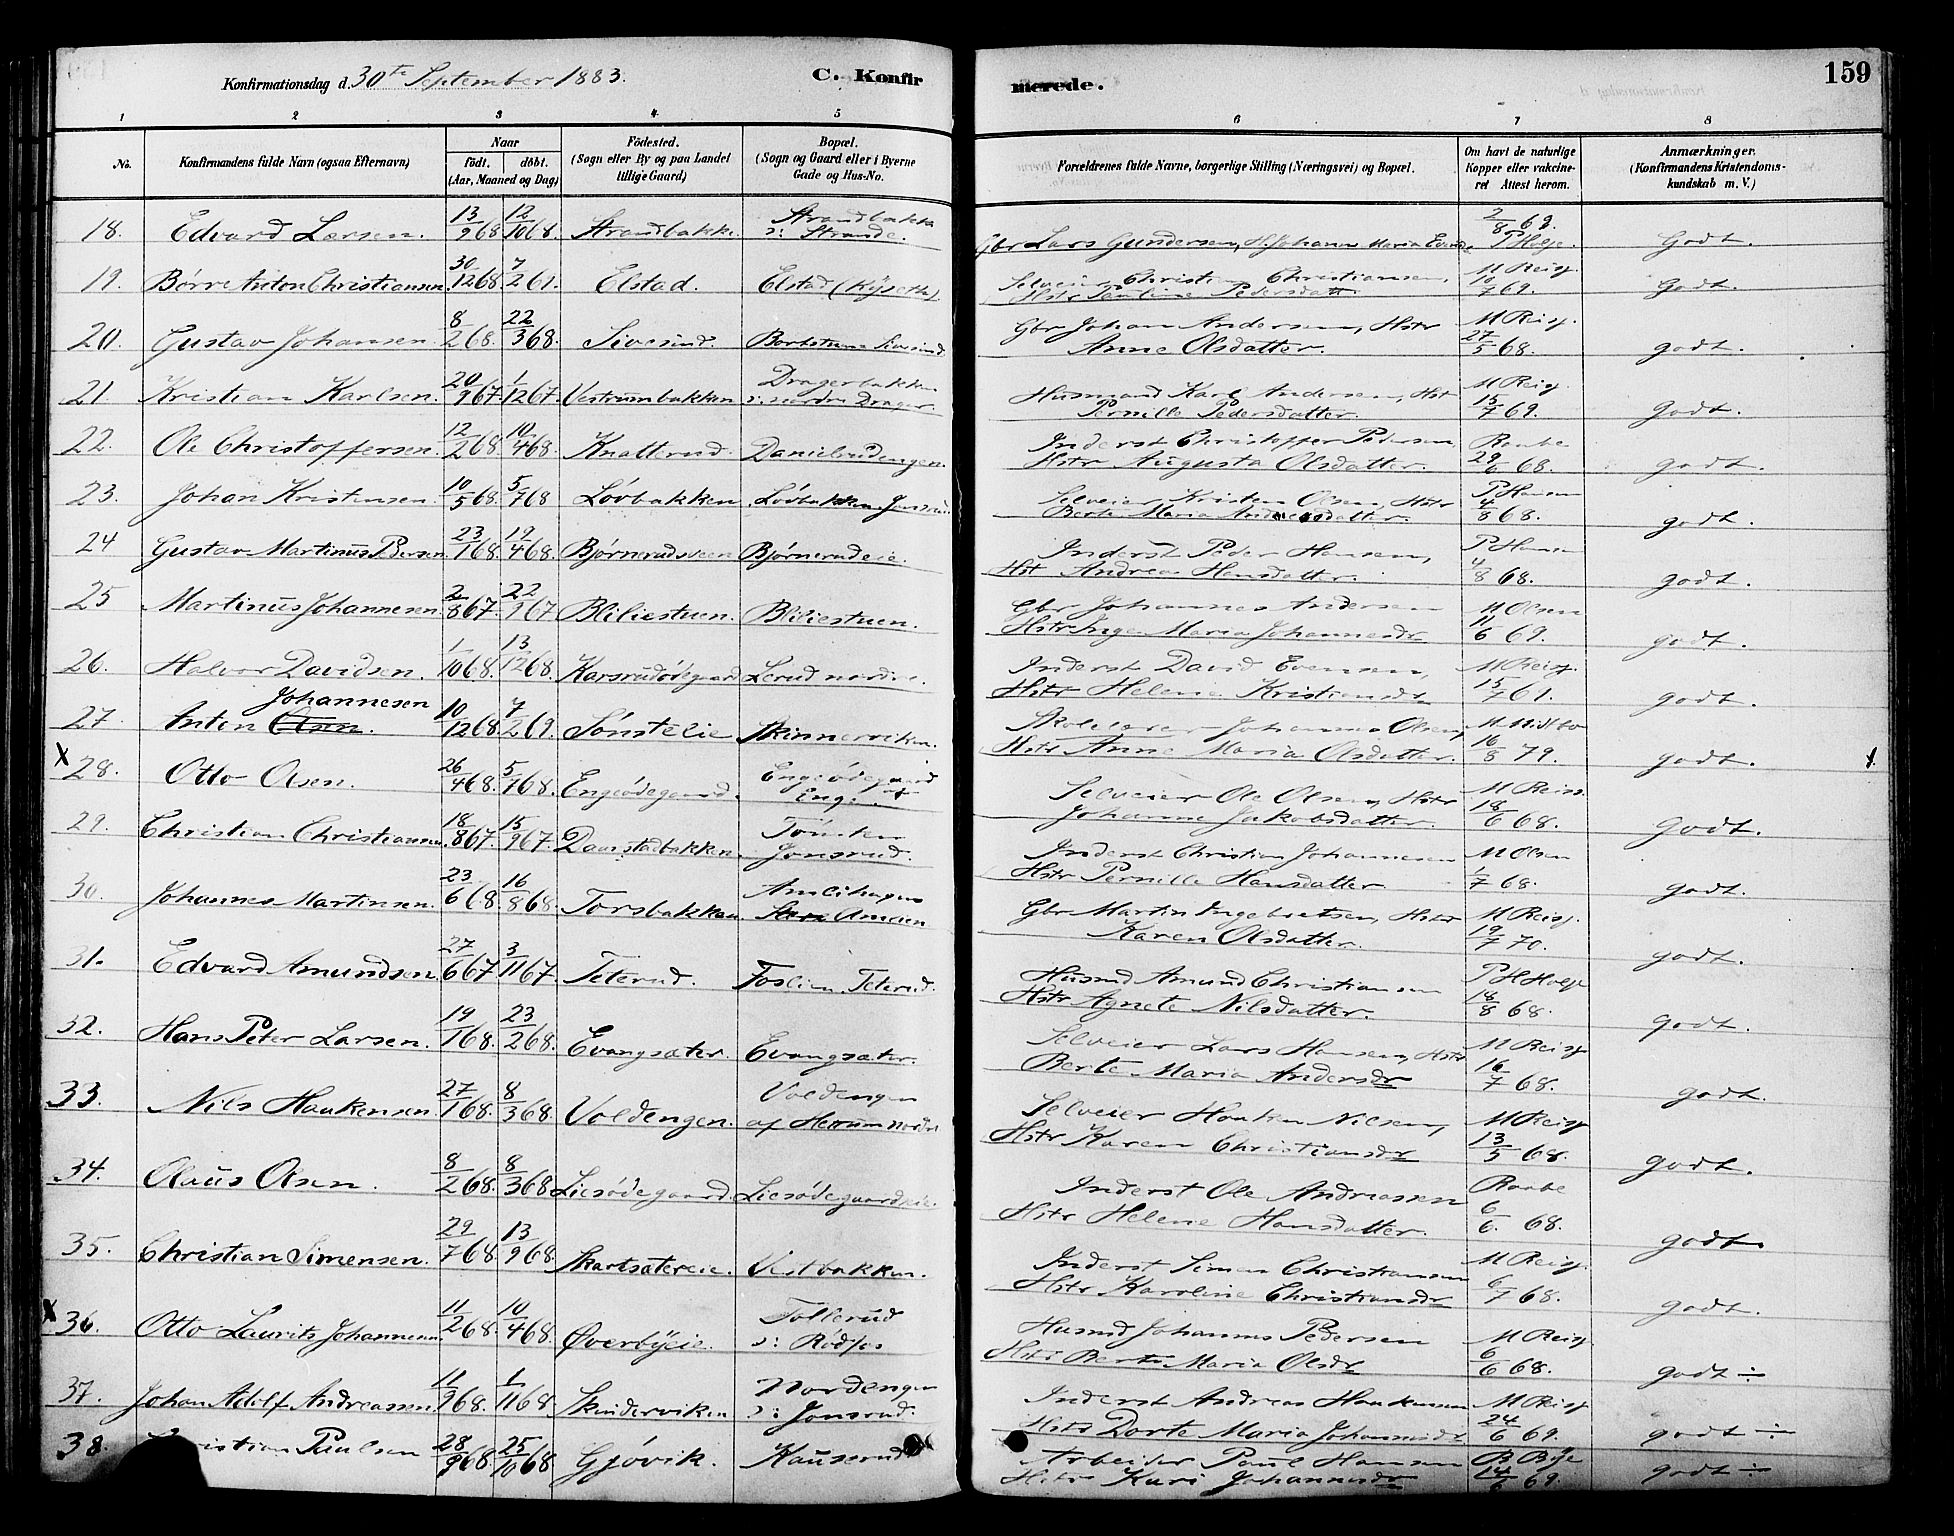 Konfirmationsdag d. 30te September 1883. C. Konfirmerede. 159
1 2 3 4 5 6 7 8
No. Konfirmandens fulde Navn (ogsaa Efternavn) Naar födt. döbt. (Aar, Maaned og Dag) Födested. (Sogn eller By og paa Landet tillige Gaard) Bopæl. (Sogn og Gaard eller i Byerne Gade og Hus-No. Forældrenes fulde Navne, borgerlige Stilling (Næringsvei) og Bopæl. Om havt de naturlige Kopper eller vakcineret Attest herom. Anmærkninger. (Konfirmandens Kristendomskundskab m. V.)
18. Edvard Larsen. 13/9 68 12/10 68. Strandbakke. Strandbakke ɔ: Strande. Gbr Lars Gundersen, H. Johanne Maria 2/8 69. P Holje. Godt.
19. Børre Anton Christiansen. 30/12 68. 7/2 61. Elstad. Elstad Selveier Christian Christiansen, Hstr Pauline Pedersdatt. M Reisg. 10/7 69. godt.
20. Gustav Johansen. 8/2 68. 22/3 68. Sivesind. Sivesind Gbr Johan Andersen, Hstr Anne Olsdatter. M Reisg. 27/5 68. godt.
21. Kristian Karlsen. 20/9 67. 1/12 67. Vestrumbakken Dragerbakken ɔ: nordre Drager. Husmand Karl Andersen, Hst Pernille Pedersdatter. M Reisg. 15/7 69. Godt.
22. Ole Christoffersen. 12/2 68. 10/4 68. Knatterud. Danielrudengen. Inderst Christoffer Pedersen Hstr Augusta Olsdatter. Raabe 29/6 68. godt.
23. Johan Kristensen 10/5 68. 5/7 68 Løvbakken Løvbakken Jonsrud. Selveier Kristen Olsen, Hstr Berte Maria Andreasdatter. P Hansen 4/8 68. godt.
24 Gustav Martinus Pedersen 23/1 68. 19/4 68. Bjørnerudsveen Bjørnerudeie. Inderst Peder Hansen, Hst Andrea Hansdatter. P Hansen 4/8 68. godt.
25 Martinus Johannesen. 2/8 67. 22/9 67 Bliliestuen. Bliliestuen. Gbr Johannes Andersen Hstr Inger Maria Johannesdr M Olsen 11/6 69. godt.
26. Halvor Davidsen. 1/10 68. 13/12 68. Karsrudødegaard Lerud nordre. Inderst David Evensen, Hstr Helene Kristiansdr M Reisg. 15/7 61. godt.
27. Anton Johannesen ~~Olsen~~. 10/12 68. 7/2 69. Sønstelie Skinnerviken. Skolelærer Johannes Olsen, Hstr Anne Maria Olsdatter. M Midtbo 16/8 79. godt.
X 28. Otto Olsen. 26/4 68. 5/7 68. Engeødegaard. Engeødegaard af Enge. Selveier Ole Olsen, Hstr Johanne Jakobsdatter. M Reisg. 18/6 68. godt.
29. Christian Christiansen. 18/8 67. 15/9 67. Daarstadbakken. Jonsrud. Inderst Christian Johannesen Hstr Pernille Hansdatter. M Olsen 1/7 68. godt.
30. Johannes Martinsen. 23/6 68. 16/8 68. Torsbakken. Amlihagen Gbr Martin Ingebretsen, Hstr Karen Olsdatter. M Reisg. 19/7 70. godt.
31. Edvard Amundsen. 27/6 67. 3/11 67. Teterud. Foslien, Teterud. Husmd Amund Christiansen Hstr Agnete Nilsdatter. P H Holje 18/8 68. godt.
32. Hans Peter Larsen. 19/1 68. 23/2 68. Evangsæter. Evangsæter. Selveier Lars Hansen, Hstr Berte Maria Andersdr M Reisg 16/7 68. godt.
33. Nils Haakensen 27/1 68. 8/3 68. Voldengen. Voldengen af Herrum nordre Selveier Haaken Nilsen, Hstr Karen Christiansdr M Reisg 13/5 68. godt.
34. Olaus Olsen. 8/2 68. 8/3 68 Liesødegaard. Liesødegaardseie. Inderst Ole Andreassen Hstr Helene Hansdatter. Raabe 6/6. 68. godt.
35. Christian Simensen. 29/7 68. 13/9 68. Skartsætereie. Vestbakken. Inderst Simen Christiansen Hstr Karoline Christiansdr M Reisg. 6/7 68. godt.
X 36. Otto Laurits Johannesen 11/2 68. 10/4 68. Øverbyeie. Tollerud ɔ: Rødfos Husmd Johannes Pedersen Hstr Berte Maria Olsdr M Reisg 6/6 68. godt
37. Johan Adolf Andreassen 11/9 68. 1/11 68 Skinderviken Nordengen ɔ: Jonsrud. Inderst Andreas Haakensen Hstr Dorte Maria Johannesdr M Reisg 24/6 69. godt
38. Christian Paulsen 28/9 68. 25/10 68 Gjøvik. Kauserud Arbeider Paul Hansen Hstr Kari Johannesdr B Bye 14/6 69. godt